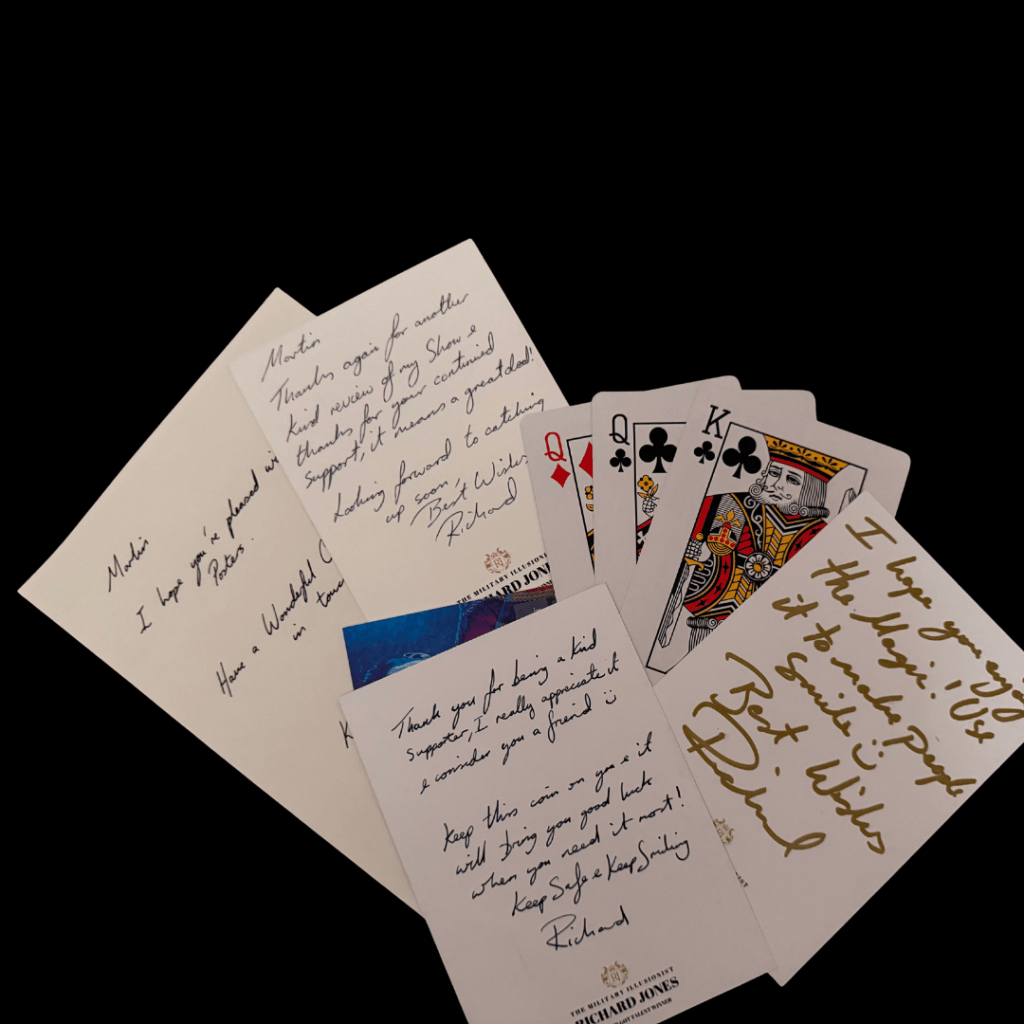 Martin
I hope you're pleased wi
Poster.
Have a Wonderful C
in
K
Martin
Thanks again for another
kind review of my Show &
thanks for your continued
support, it means a great deal!
Looking forward to catching
up soon,
Best Wishes
Richard
THE MILITARY ILLUSIONIST
RICHARD JONES
Q
Q
K
I hope you enjoy
the Magic! Use
it to make people
Smile
Best Wishes
Richard
Thank you for being a kind
supporter, I really appreciate it
& consider you a friend
Keep this coin on you & it
will bring you good luck
when you need it most!
Keep Safe & Keep Smiling
Richard
THE MILITARY ILLUSIONIST
RICHARD JONES
GOT TALENT WINNER